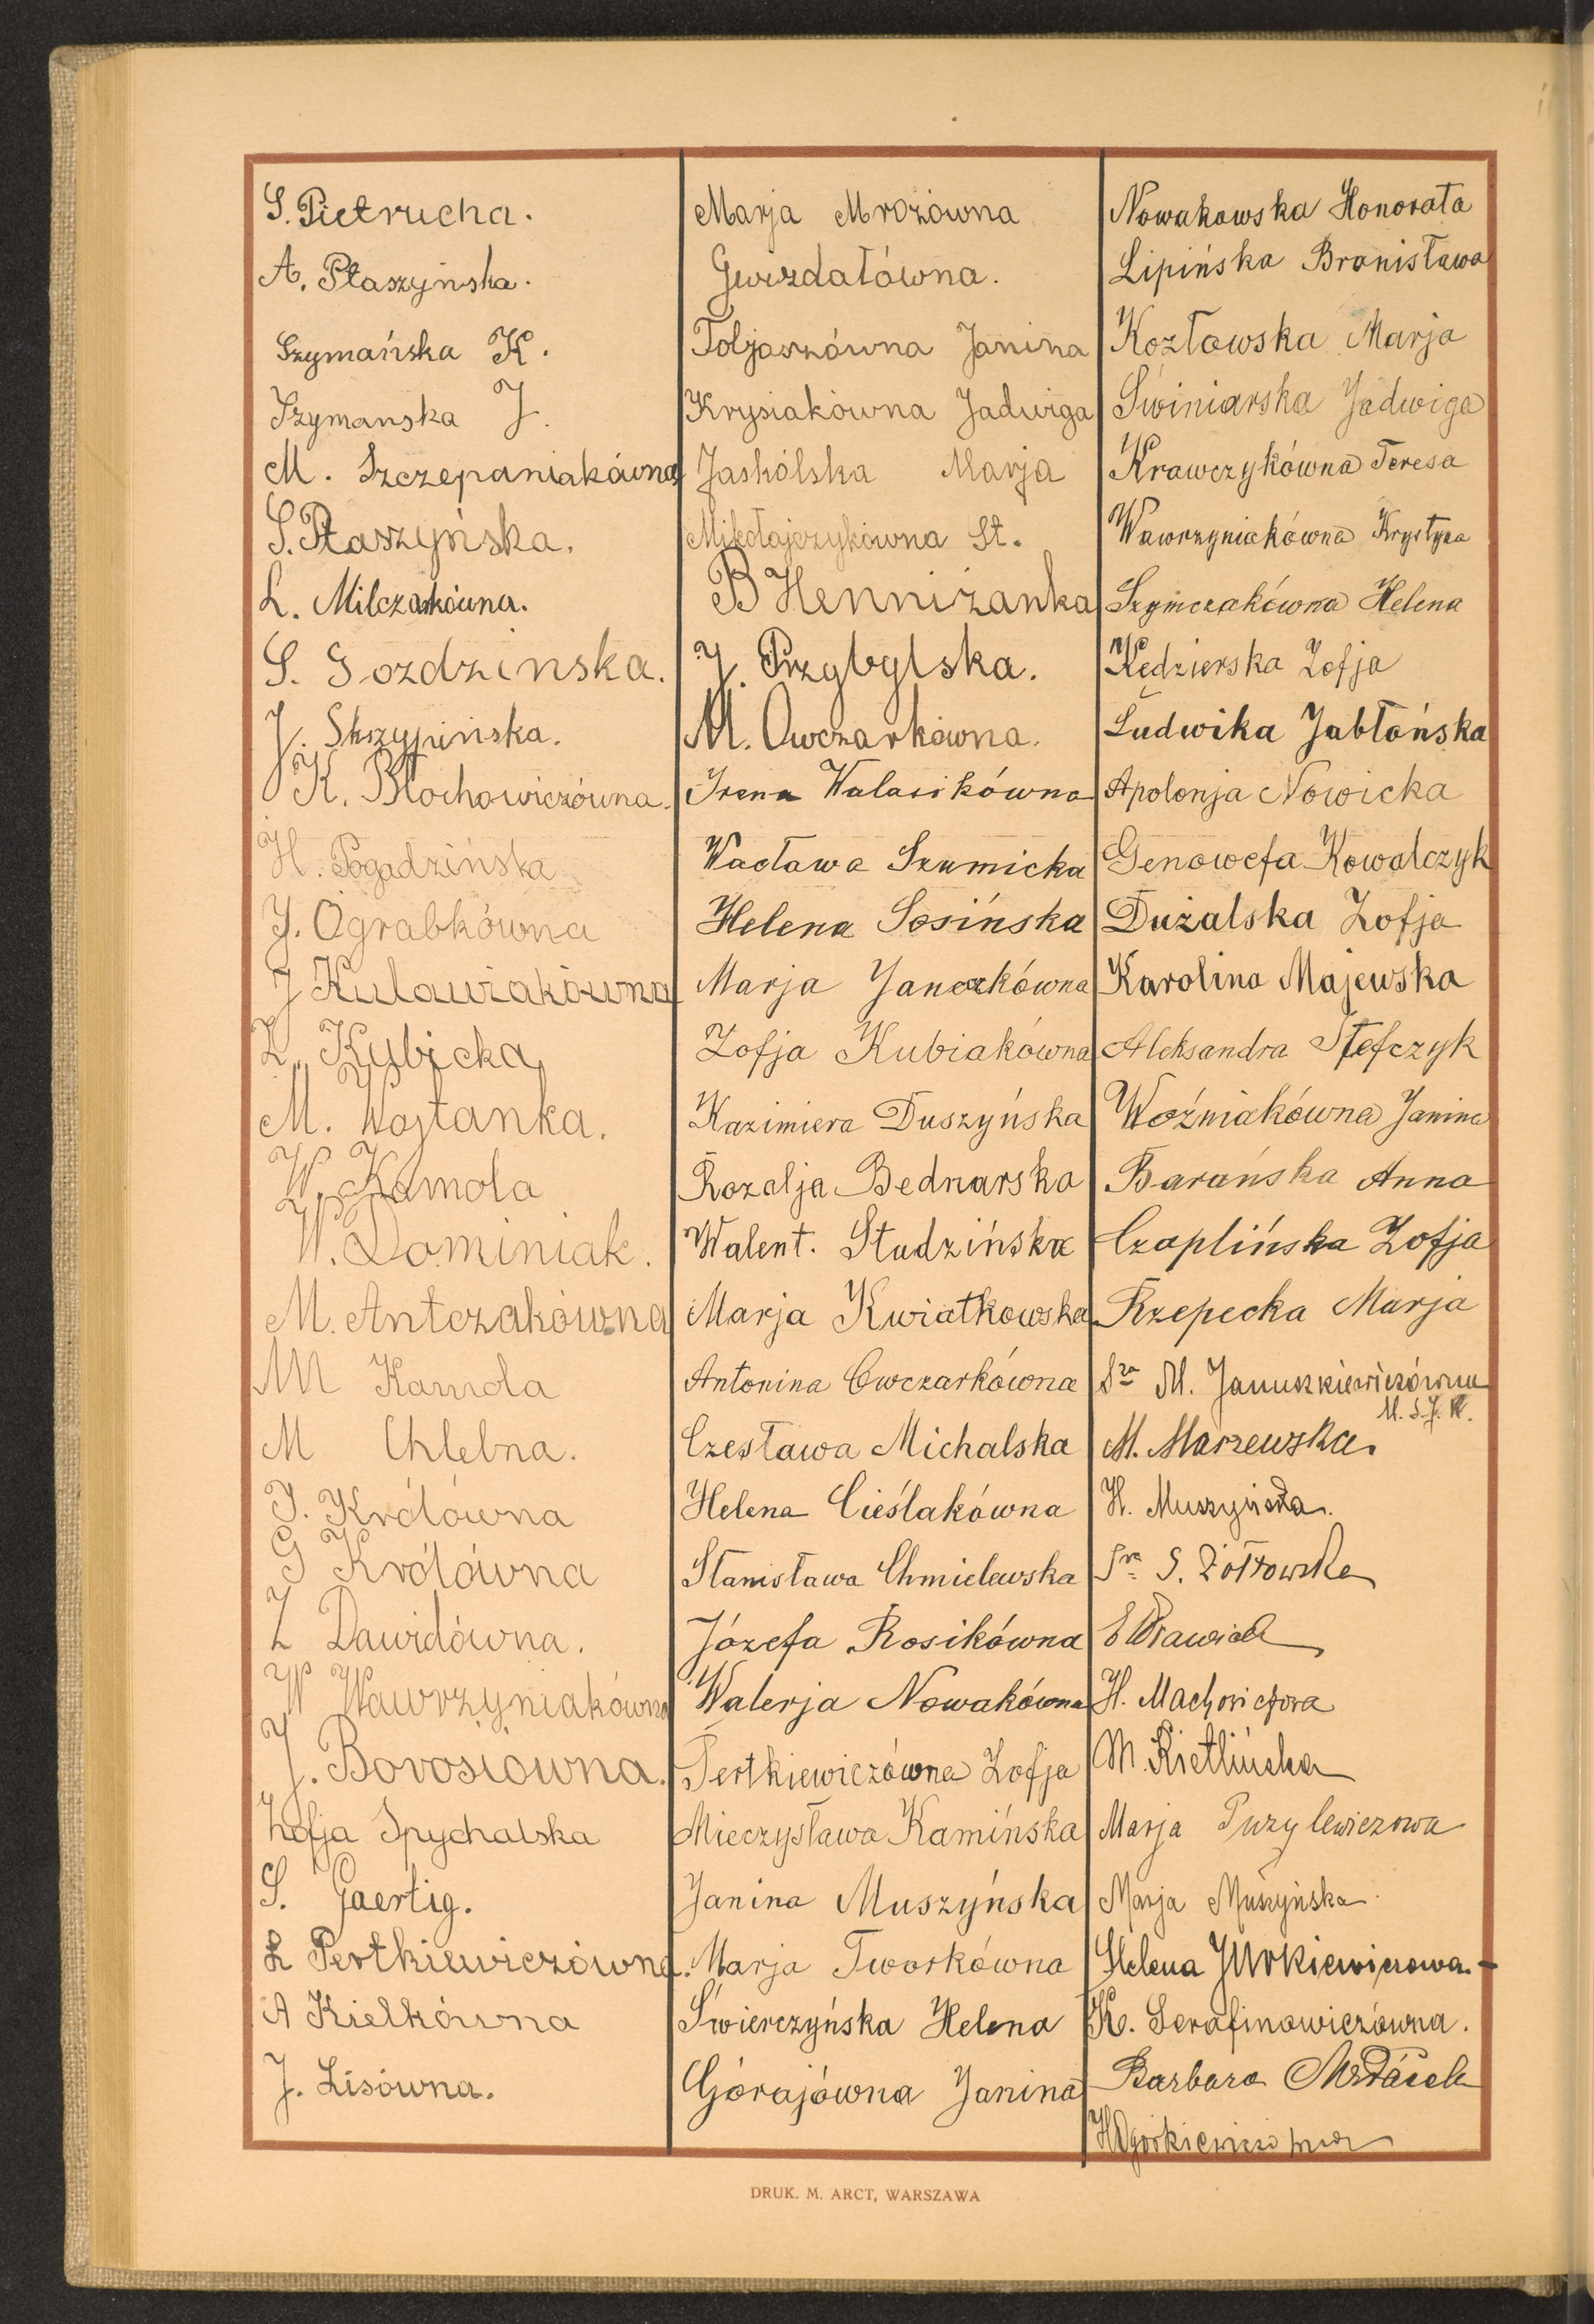 S. Pietrucha.
A. Ptaszyńska.
Szymańska K.
Szymanska J.
M. Szczepaniakówna
S. Ptaszyńska.
L. Milczarkówna.
S. Gozdzinska.
J. Skrzypińska.
K. Błochowiczówna.
H. Pogadzińska
J. Ograbkówna
J Kulawiakówna
Z. Kubicka
M. Wojtanka.
W. Kamola
W. Dominiak.
M. Antczakówna
M Kamola
M Chlebna.
J. Królówna
G Królówna
Z Dawidówna.
W Wawrzyniakówna
J. Borosiówna.
Zofja Spychalska
S. Gaertig.
Z Pertkiewiczówna.
A Kiełkówna
J. Lisówna.
Marja Mrozówna
Gwizdałówna.
Toljaszówna Janina
Krysiakówna Jadwiga
Jaskólska Marja
Mikołajczykówna St.
B Henniżanka
J. Przybylska.
M. Owczarkówna.
Irena Walasikówna
Wacława Szumicka
Helena Sosińska
Marja Janczakówna
Zofja Kubiakówna
Kazimiera Duszyńska
Rozalja Bednarska
Walent. Studzińska
Marja Kwiatkowska
Antonina Owczarkówna
Czesława Michalska
Helena Cieślakówna
Stanisława Chmielewska
Józefa Rosikówna
Walerja Nowakówna
Pertkiewiczówna Zofja
Mieczysława Kamińska
Janina Muszyńska
Marja Tworkówna
Świerczyńska Helena
Górajówna Janina
Nowakowska Honorata
Lipińska Bronisława
Kozłowska Marja
Świniarska Jadwiga
Krawczykówna Teresa
Wawrzyniakówna Krystyna
Szymczakówna Helena
Kędzierska Zofja
Ludwika Jabłońska
Apolonja Nowicka
Genowefa Kowalczyk
Dużalska Zofja
Karolina Majewska
Aleksandra Stefczyk
Woźniakówna Janina
Barańska Anna
Czaplińska Zofja
Rzepecka Marja
Sra M. Januszkiewiczówna
M. Marzewska.
H. Muszyńska.
Sra S. Żółtowska
H. Machowiczowa
M. Kietlińska
Marja Puzylewiczowa
Marja Muszyńska
Helena Jurkiewiczowa.
K. Serafinowiczówna.
Barbara
DRUK. M. ARCT, WARSZAWA